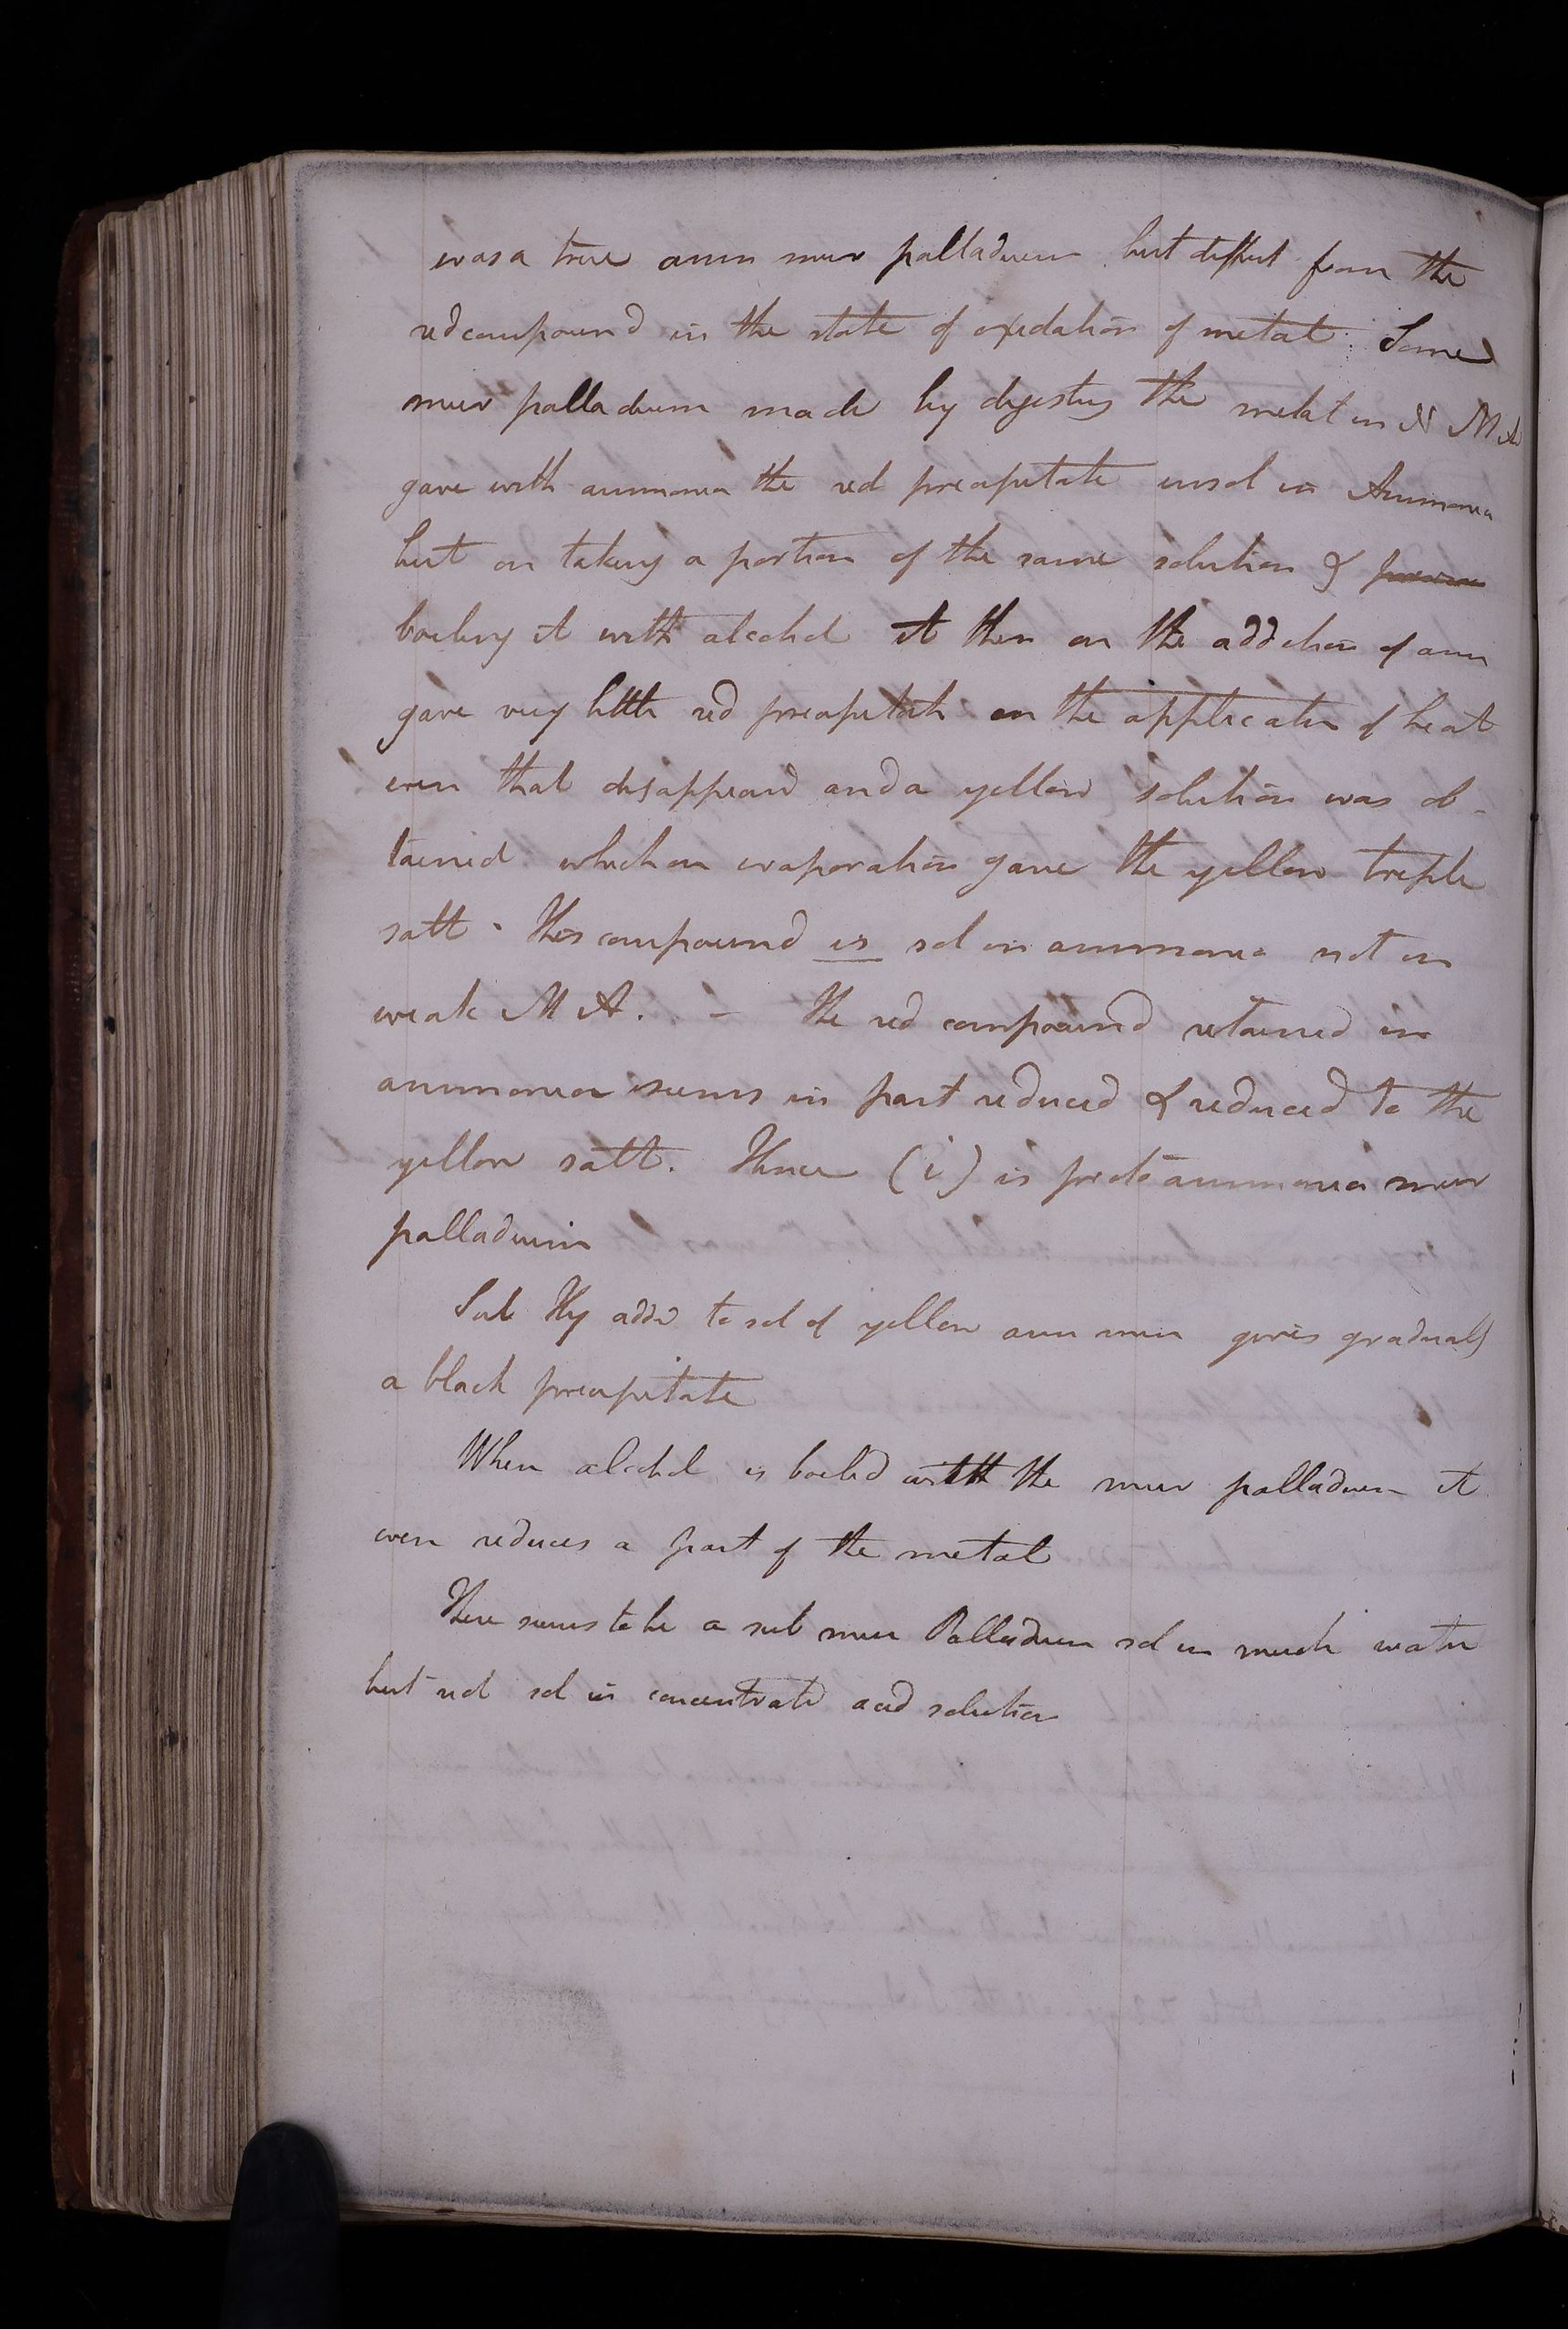 was a true amm mur palladium but differt from the
red compound in the state of oxidation of metal. Some
mur palladium made by digesting the metal in N M A
gave with ammonia the red precipitate insol in Ammonia
but on taking a portion of the same solution &
boiling it with alcohol it then on the addition of amm
gave very little red precipitate on the application of heat
even that disappeard and a yellow solution was ob-
tained which on evaporation gave the yellow triple
salt. This compound is sol in ammonia not in
weak M A. - The red compound retained in
ammonia seems in part reduced & reduced to the
yellow salt. Hence (i) is proto ammonia mur
palladium
Sul Hy addd to sol of yellow amm mur gives gradually
a black precipitate
When alcohol is boiled with the mur palladium it
even reduces a part of the metal
There seems to be a sub mur Palladium sol in much water
but not sol in concentrated acid solution